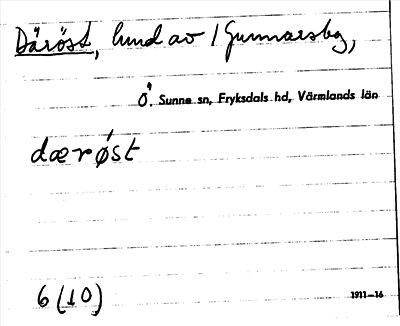 Däröst, lund av / Gunnarsbg,
Ö. Sunne sn, Fryksdals hd, Värmlands län
dærøst
6 (10)
1911–16